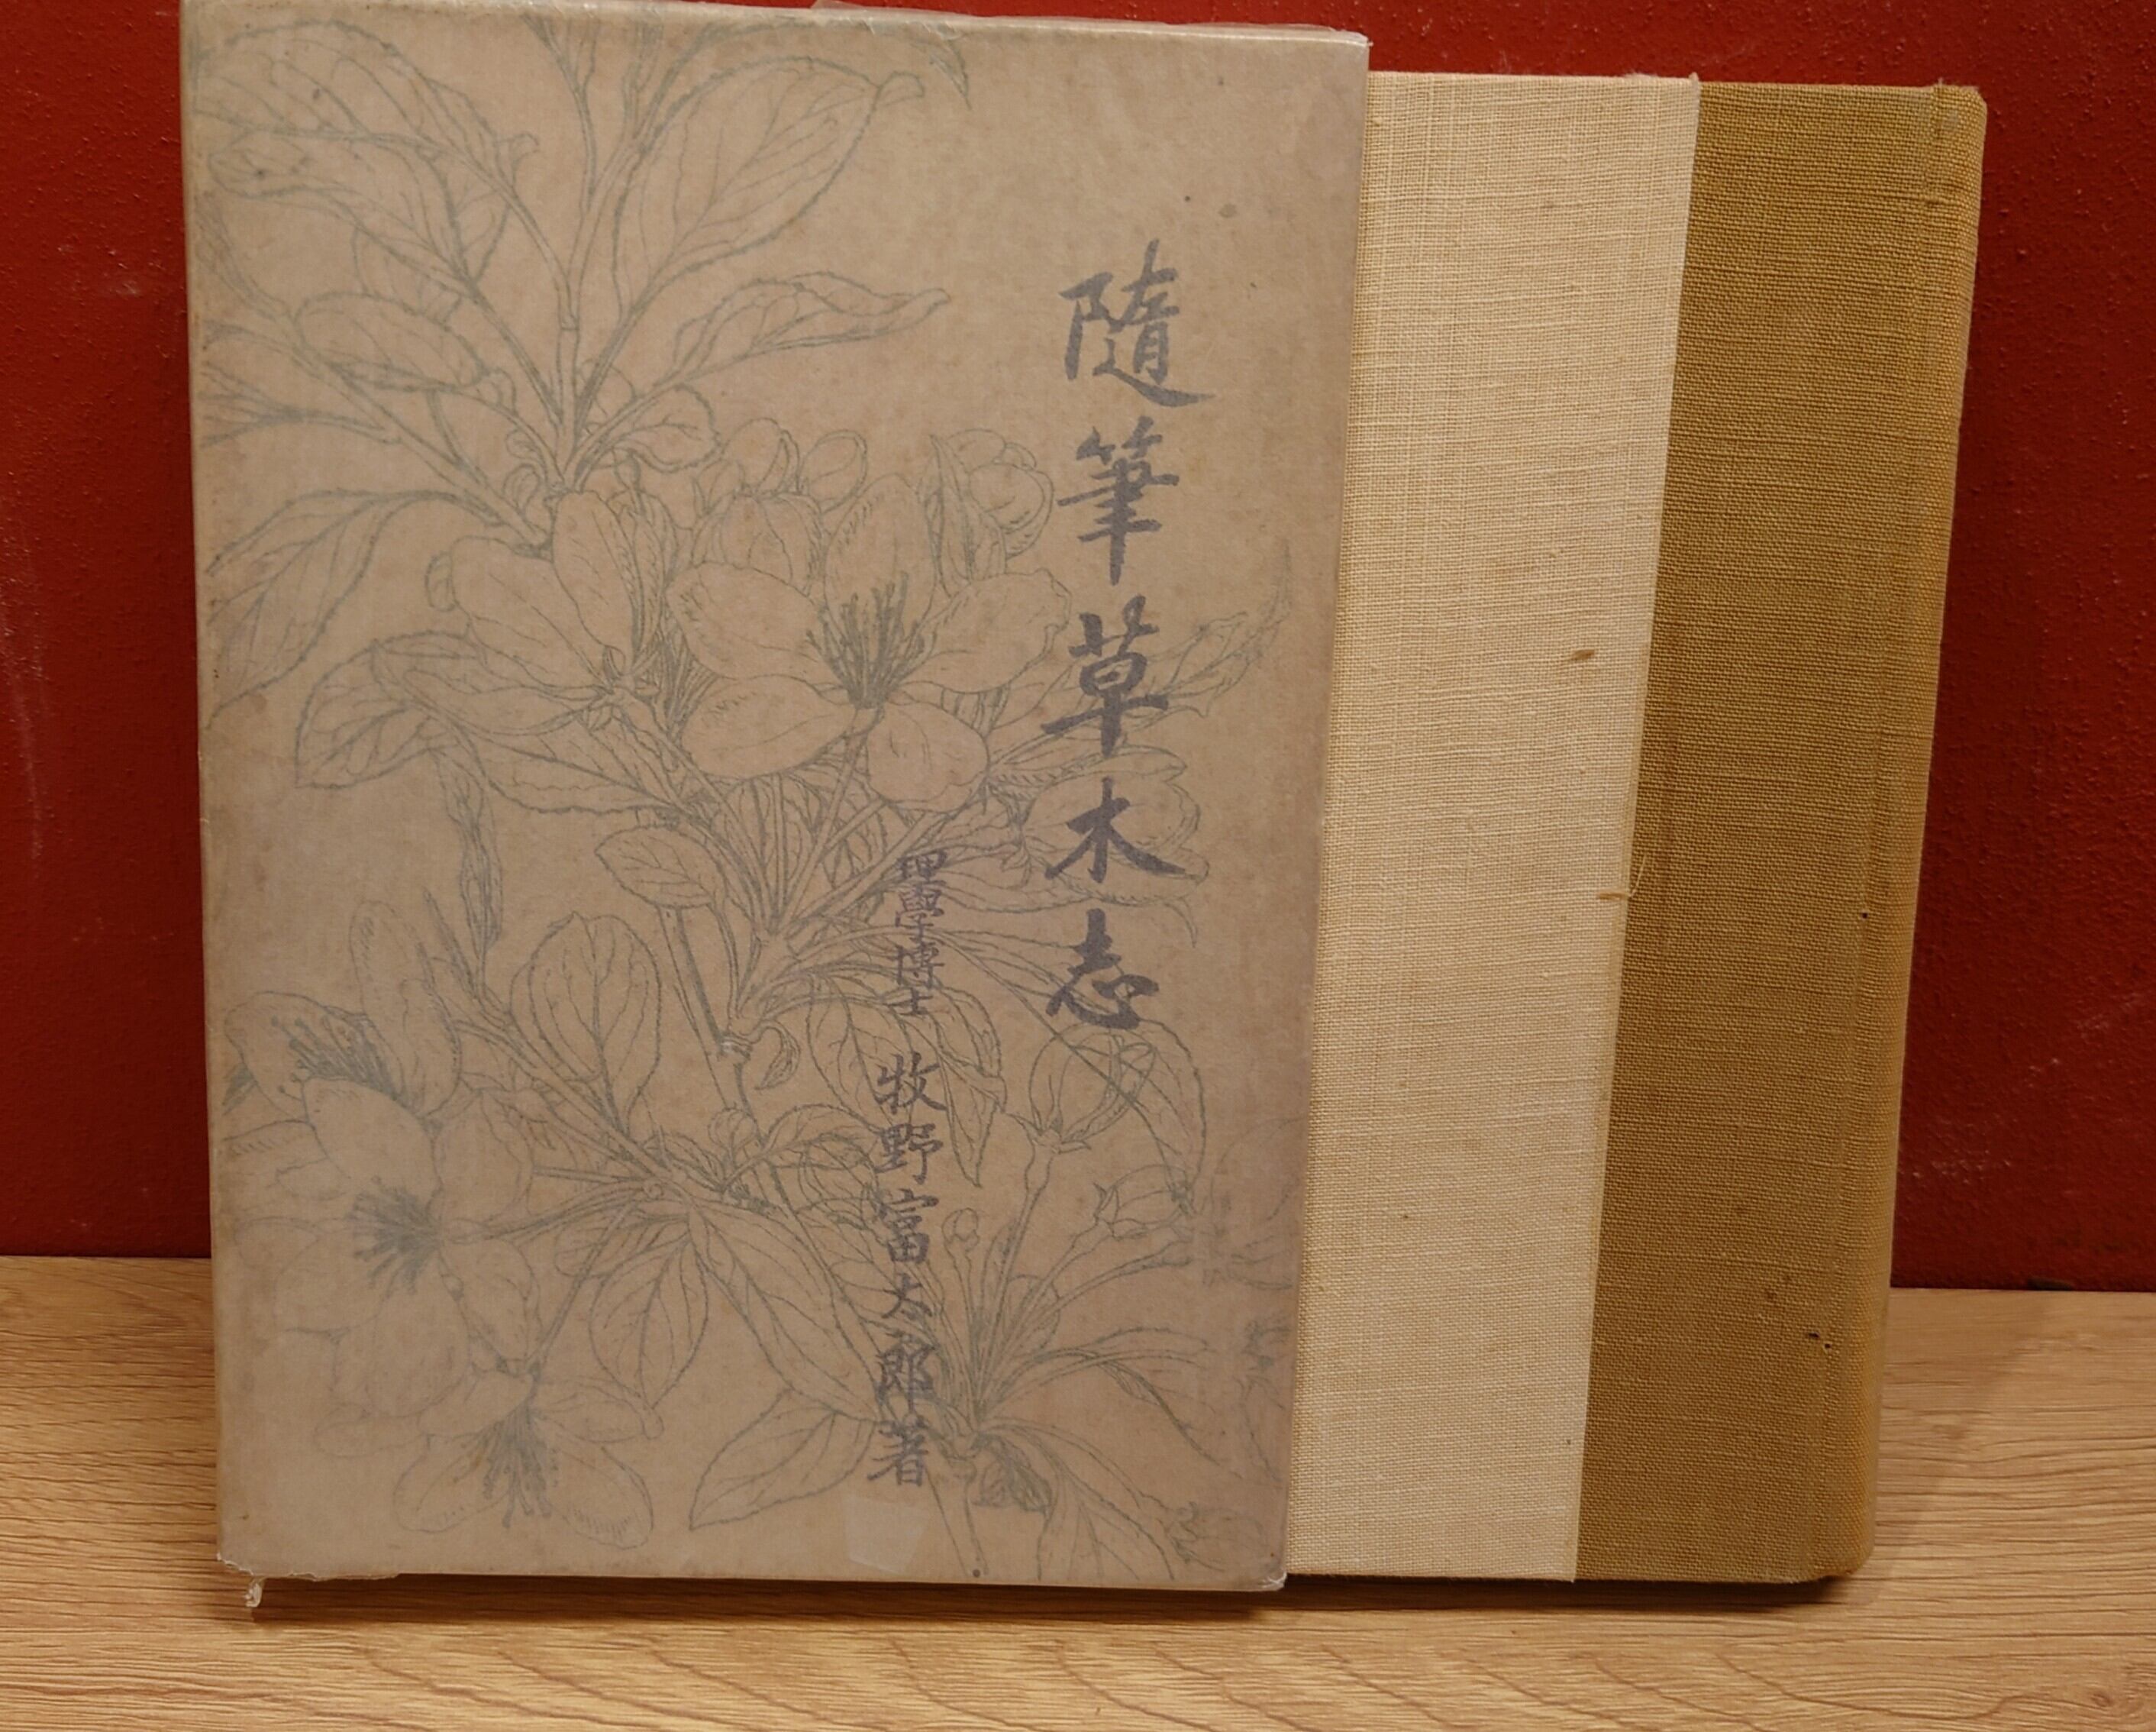 隨筆草木志
理學博士 牧野富太郎著